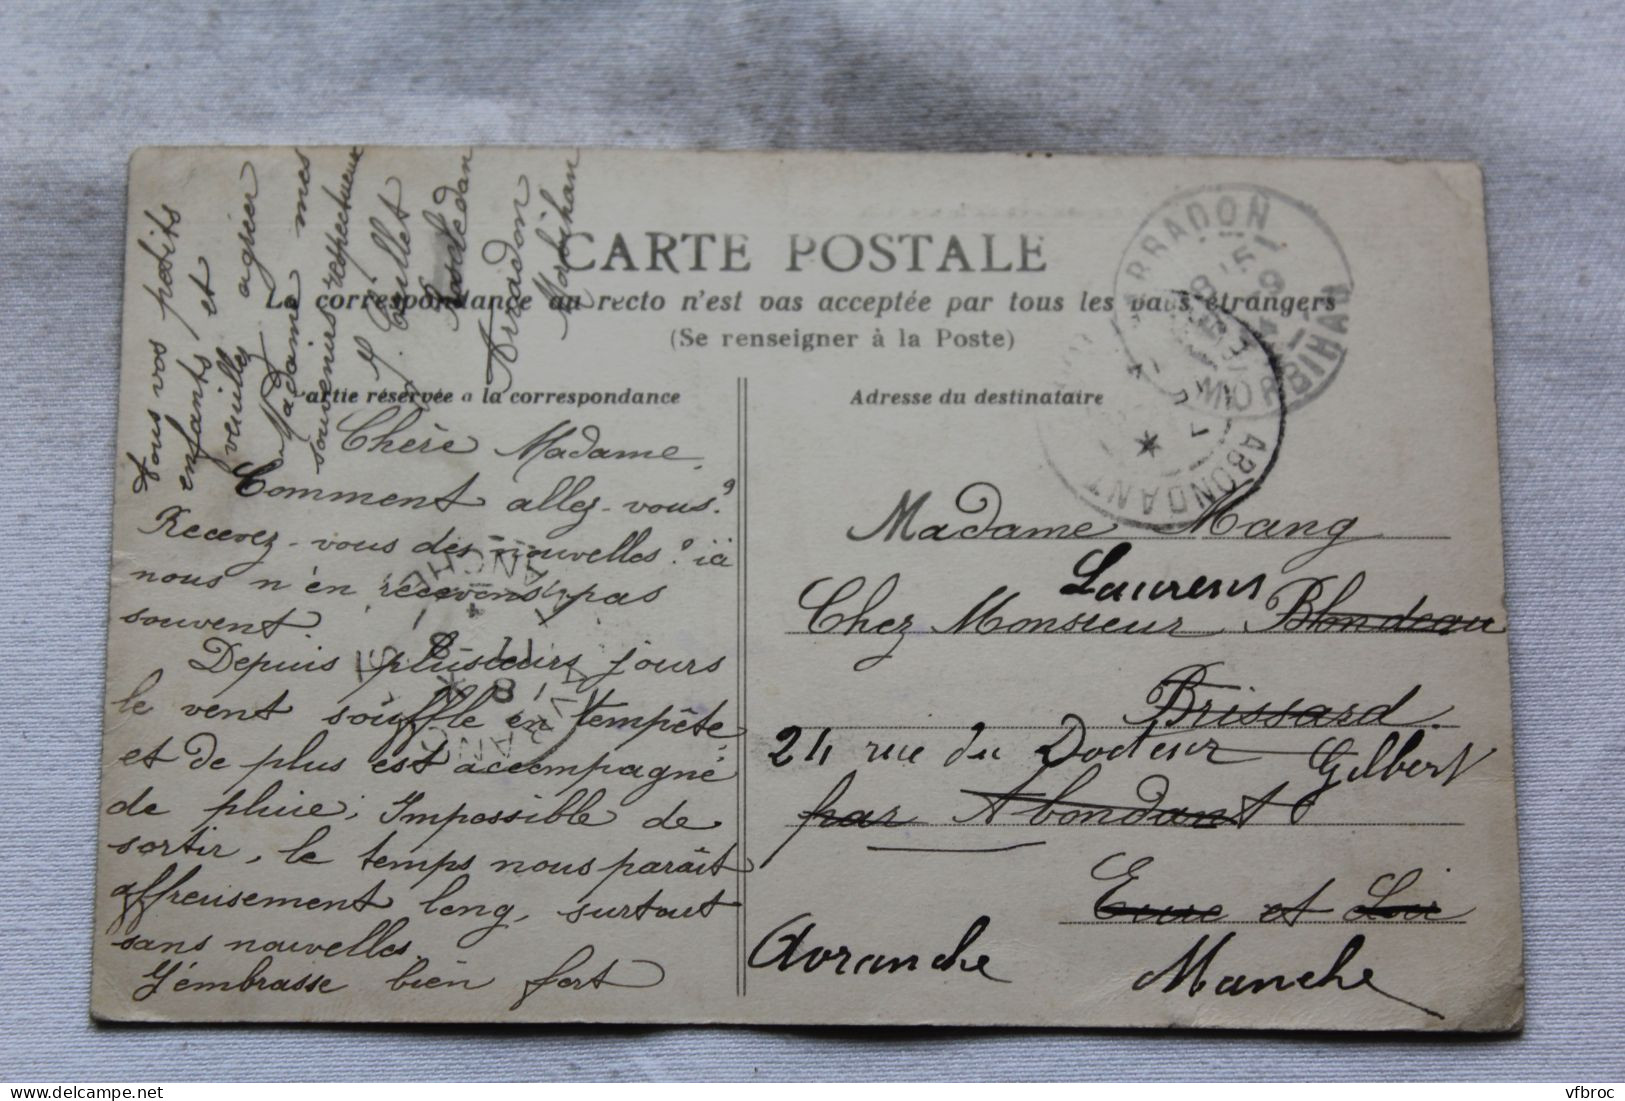 CARTE POSTALE
La correspondance au recto n'est pas acceptée par tous les pays étrangers
(Se renseigner à la Poste)
Partie réservée a la correspondance
Adresse du destinataire
Chère Madame,
Comment allez-vous?
Recevez-vous des nouvelles? ici
nous n'en recevons pas
souvent.
Depuis plusieurs jours
le vent souffle en tempête
et de plus est accompagné
de pluie; Impossible de
sortir, le temps nous paraît
affreusement long, surtout
sans nouvelles.
J'embrasse bien fort
tous vos petits
enfants et
veuillez agréer
Madame mes
souvenirs respectueux
Caillet
Arradon
Morbihan
Madame Mang
Laurens
Chez Monsieur Blondeau
Brissard
24 rue du Docteur Gilbert
par Abondant
Eure et Loir
Avranche Manche
ARRADON
MORBIHAN
ABONDANT
AVRANCHES
vfbroc